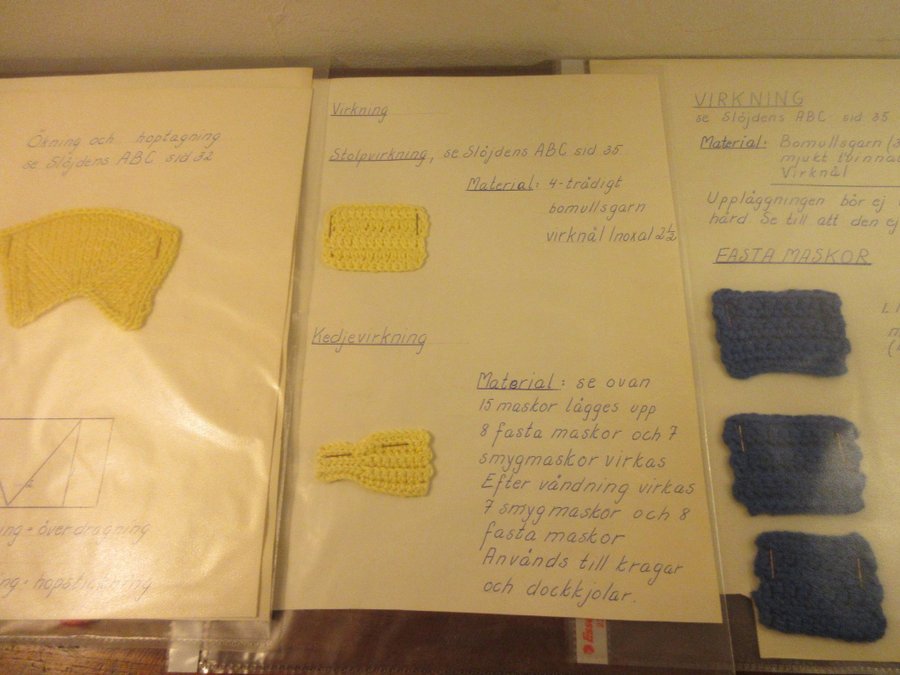 Ökning och hoptagning
se Slöjdens ABC sid 32
överdragning
Virkning
Stolpvirkning, se Slöjdens ABC sid 35
Material: 4-trådigt
bomullsgarn
virknål Inoxal 2½
Kedjevirkning
Material: se ovan
15 maskor lägges upp
8 fasta maskor och 7
smygmaskor virkas
Efter vändning virkas
7 smygmaskor och 8
fasta maskor
Används till kragar
och dockkjolar.
VIRKNING
se Slöjdens ABC sid 35
Material: Bomullsgarn (3
mjukt tvinna
Virknål
Uppläggningen bör ej
hård. Se till att den ej
FASTA MASKOR